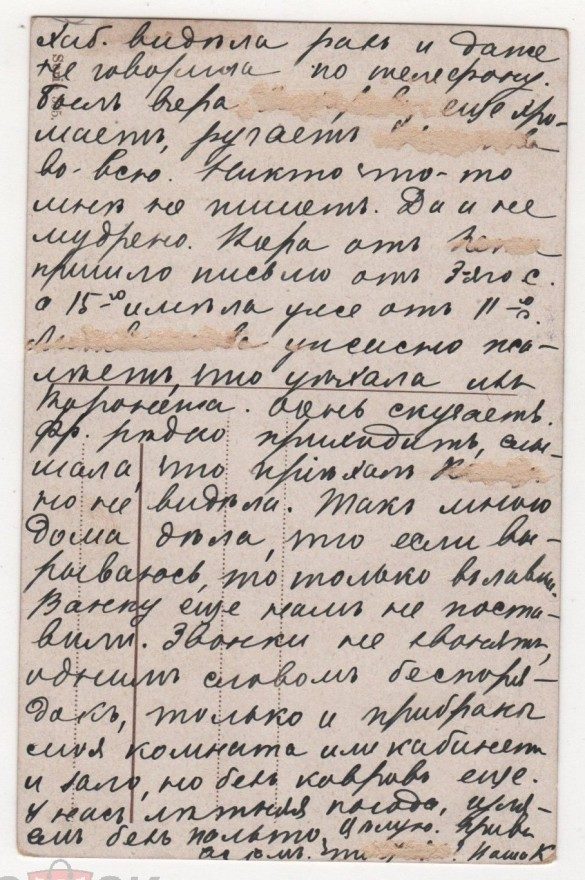 Хиб. видѣла разъ и даже
не говорила по телефону.
Былъ вчера еще хро-
маетъ, ругаетъ
во-всю. Никто что-то
мнѣ не пишетъ. Да и не
мудрено. Вчера отъ
пришло письмо отъ 3-яго с.
а 15-го имѣла уже отъ 11-го.
ужасно жа-
лѣетъ, что уѣхала изъ
Воронежа. Очень скучаетъ.
Фр. рѣдко приходитъ, слы-
шала, что пріѣхалъ
но не видѣла. Такъ много
дома дѣла, что если вы-
рываюсь, то только въ лавки.
Ванну еще намъ не поста-
вили. Звонки не звонятъ,
однимъ словомъ беспоря-
докъ, только и прибраны
моя комната или кабинетъ
и зало, но безъ ковровъ еще.
У насъ лѣтняя погода, гуля-
емъ безъ пальто. Цѣлую.